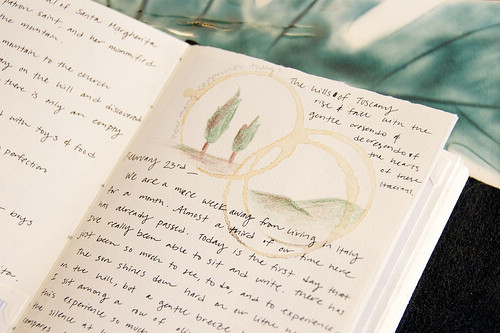 al of Santa Margherita
patron saint and her mummified
the mountain.
mountain to the church
on the hill and discovered
there is only an empty
with toys & food
perfection
boys
The hills of Toscany
rise & fall with the
gentle cresendo &
decresendo of
the hearts
of these
Italians.
February 23rd —
We are a mere week away from living in Italy
for a month. Almost a third of our time here
has already passed. Today is the first day that
I've really been able to sit and write. There has
just been so much to see, to do, and to experience.
The sun shines down hard on our little
in the hill, but a gentle breeze
I sit among a row of
this experience so much
the silence at
compares